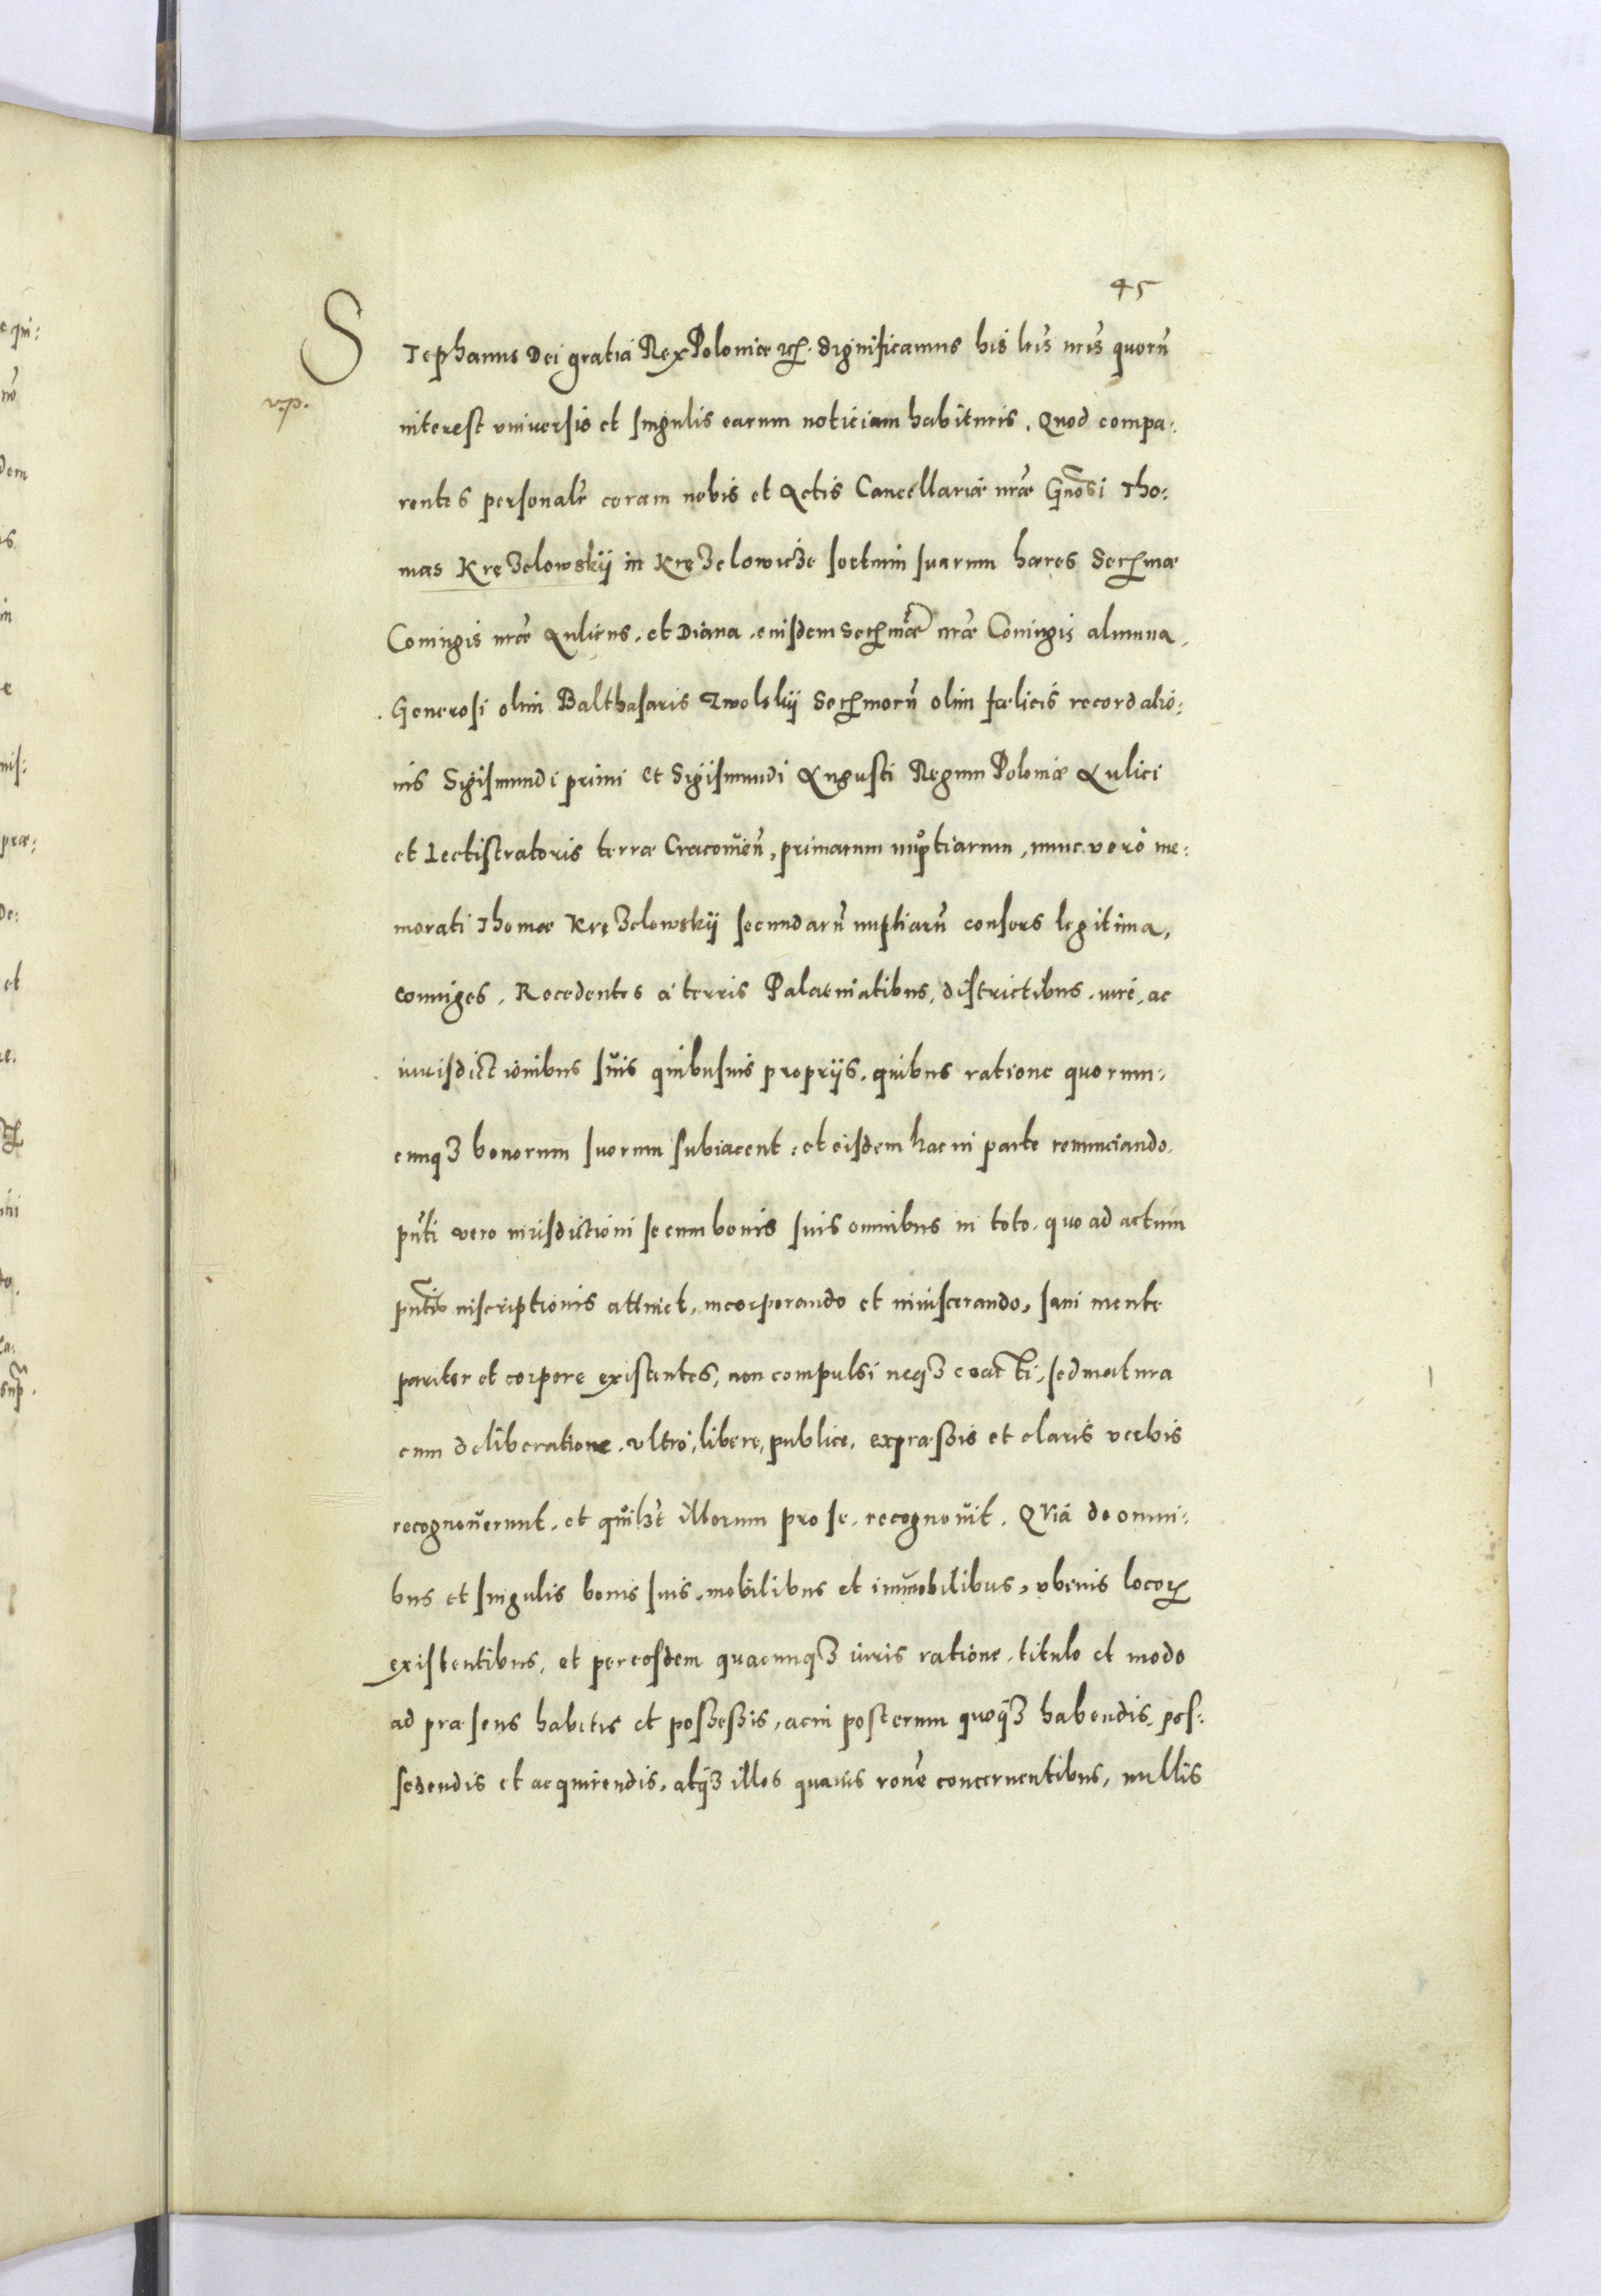 45
STephanus Dei gratia Rex Poloniæ etc. Significamus his lr̃is nr̃is quorũ
v.p.
interest vniuersis et singulis earum noticiam habituris. Quod compa:
rentes personalr̃ coram nobis et Actis Cancellariæ nr̃æ Gn̄osi Tho:
mas Kręzelowskij in Kręzelowicze sortium suarum hæres Ser:mæ
Coniugis nr̃æ Aulicus, et Diana, eiusdem Ser:mæ nr̃æ Coniugis alumna,
Generosi olim Balthasaris Zwolskij Ser:morũ olim fælicis recordatio:
nis Sigismundi primi et Sigismundi Augusti Regum Poloniæ Aulici
et Lectistratoris terræ Cracouien̄, primarum nuptiarum, nunc vero me:
morati Thomæ Kręzelowskij secundarũ nuptiarũ consors legitima,
coniuges. Recedentes à terris Palatinatibus, districtibus, iure, ac
iurisdictionibus suis quibusuis propriis, quibus ratione quorum:
cunqȝ bonorum suorum subiacent: et eisdem hac in parte renunciando,
pñti vero iurisdictioni se cum bonis suis omnibus in toto, quo ad actum
pñtis inscriptionis attinet, incorporando et inuiscerando, sani mente
pariter et corpore existentes, non compulsi neqȝ coacti, sed matura
cum deliberatione, vltro, libere, publice, expræssis et claris verbis
recognouerunt, et quilibȝt illorum pro se recognouit. QVia de omni:
bus et singulis bonis suis, mobilibus et immobilibus, vbiuis locorꝝ
existentibus, et per eosdem quacunqȝ iuris ratione, titulo et modo
ad præsens habitis et possessis, ac in posterum quoqȝ habendis, pos:
sedendis et acquirendis, atqȝ illos quauis rone concernentibus, nullis